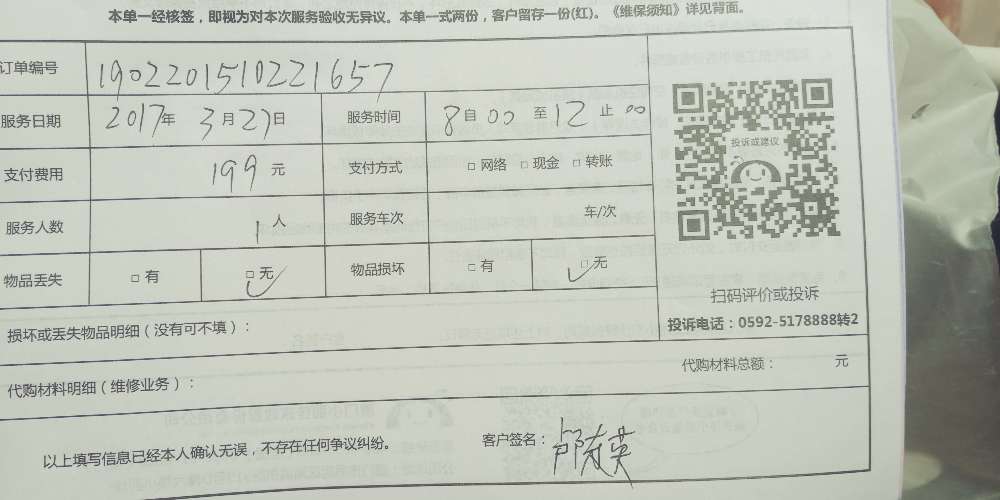 本单一经核签，即视为对本次服务验收无异议。本单一式两份，客户留存一份(红)。《维保须知》详见背面。
订单编号 1902201510221657
服务日期 2017年 3月27日 服务时间 8自00至12止00
支付费用 199元 支付方式 □网络 □现金 □转账
服务人数 1人 服务车次 车/次
物品丢失 □有 □无 物品损坏 □有 □无
投诉或建议
扫码评价或投诉
投诉电话：0592-5178888转2
损坏或丢失物品明细（没有可不填）：
代购材料明细（维修业务）： 代购材料总额： 元
以上填写信息已经本人确认无误，不存在任何争议纠纷。 客户签名：